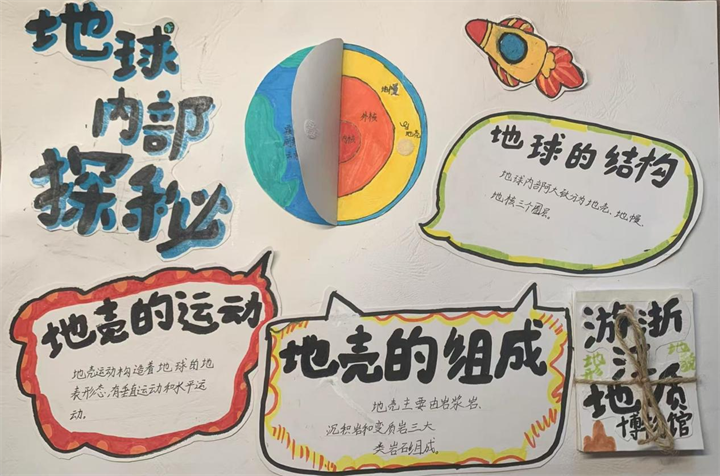 地球
内部
探秘
地幔
外核
内核
地壳
地球的结构
地球内部可大致分为地壳、地幔、
地核三个圈层。
地壳的运动
地壳运动构造着地球的地
表形态,有垂直运动和水平运
动。
地壳的组成
地壳主要由岩浆岩、
沉积岩和变质岩三大
类岩石组成。
游浙
江
地质
博物馆
地形
地貌